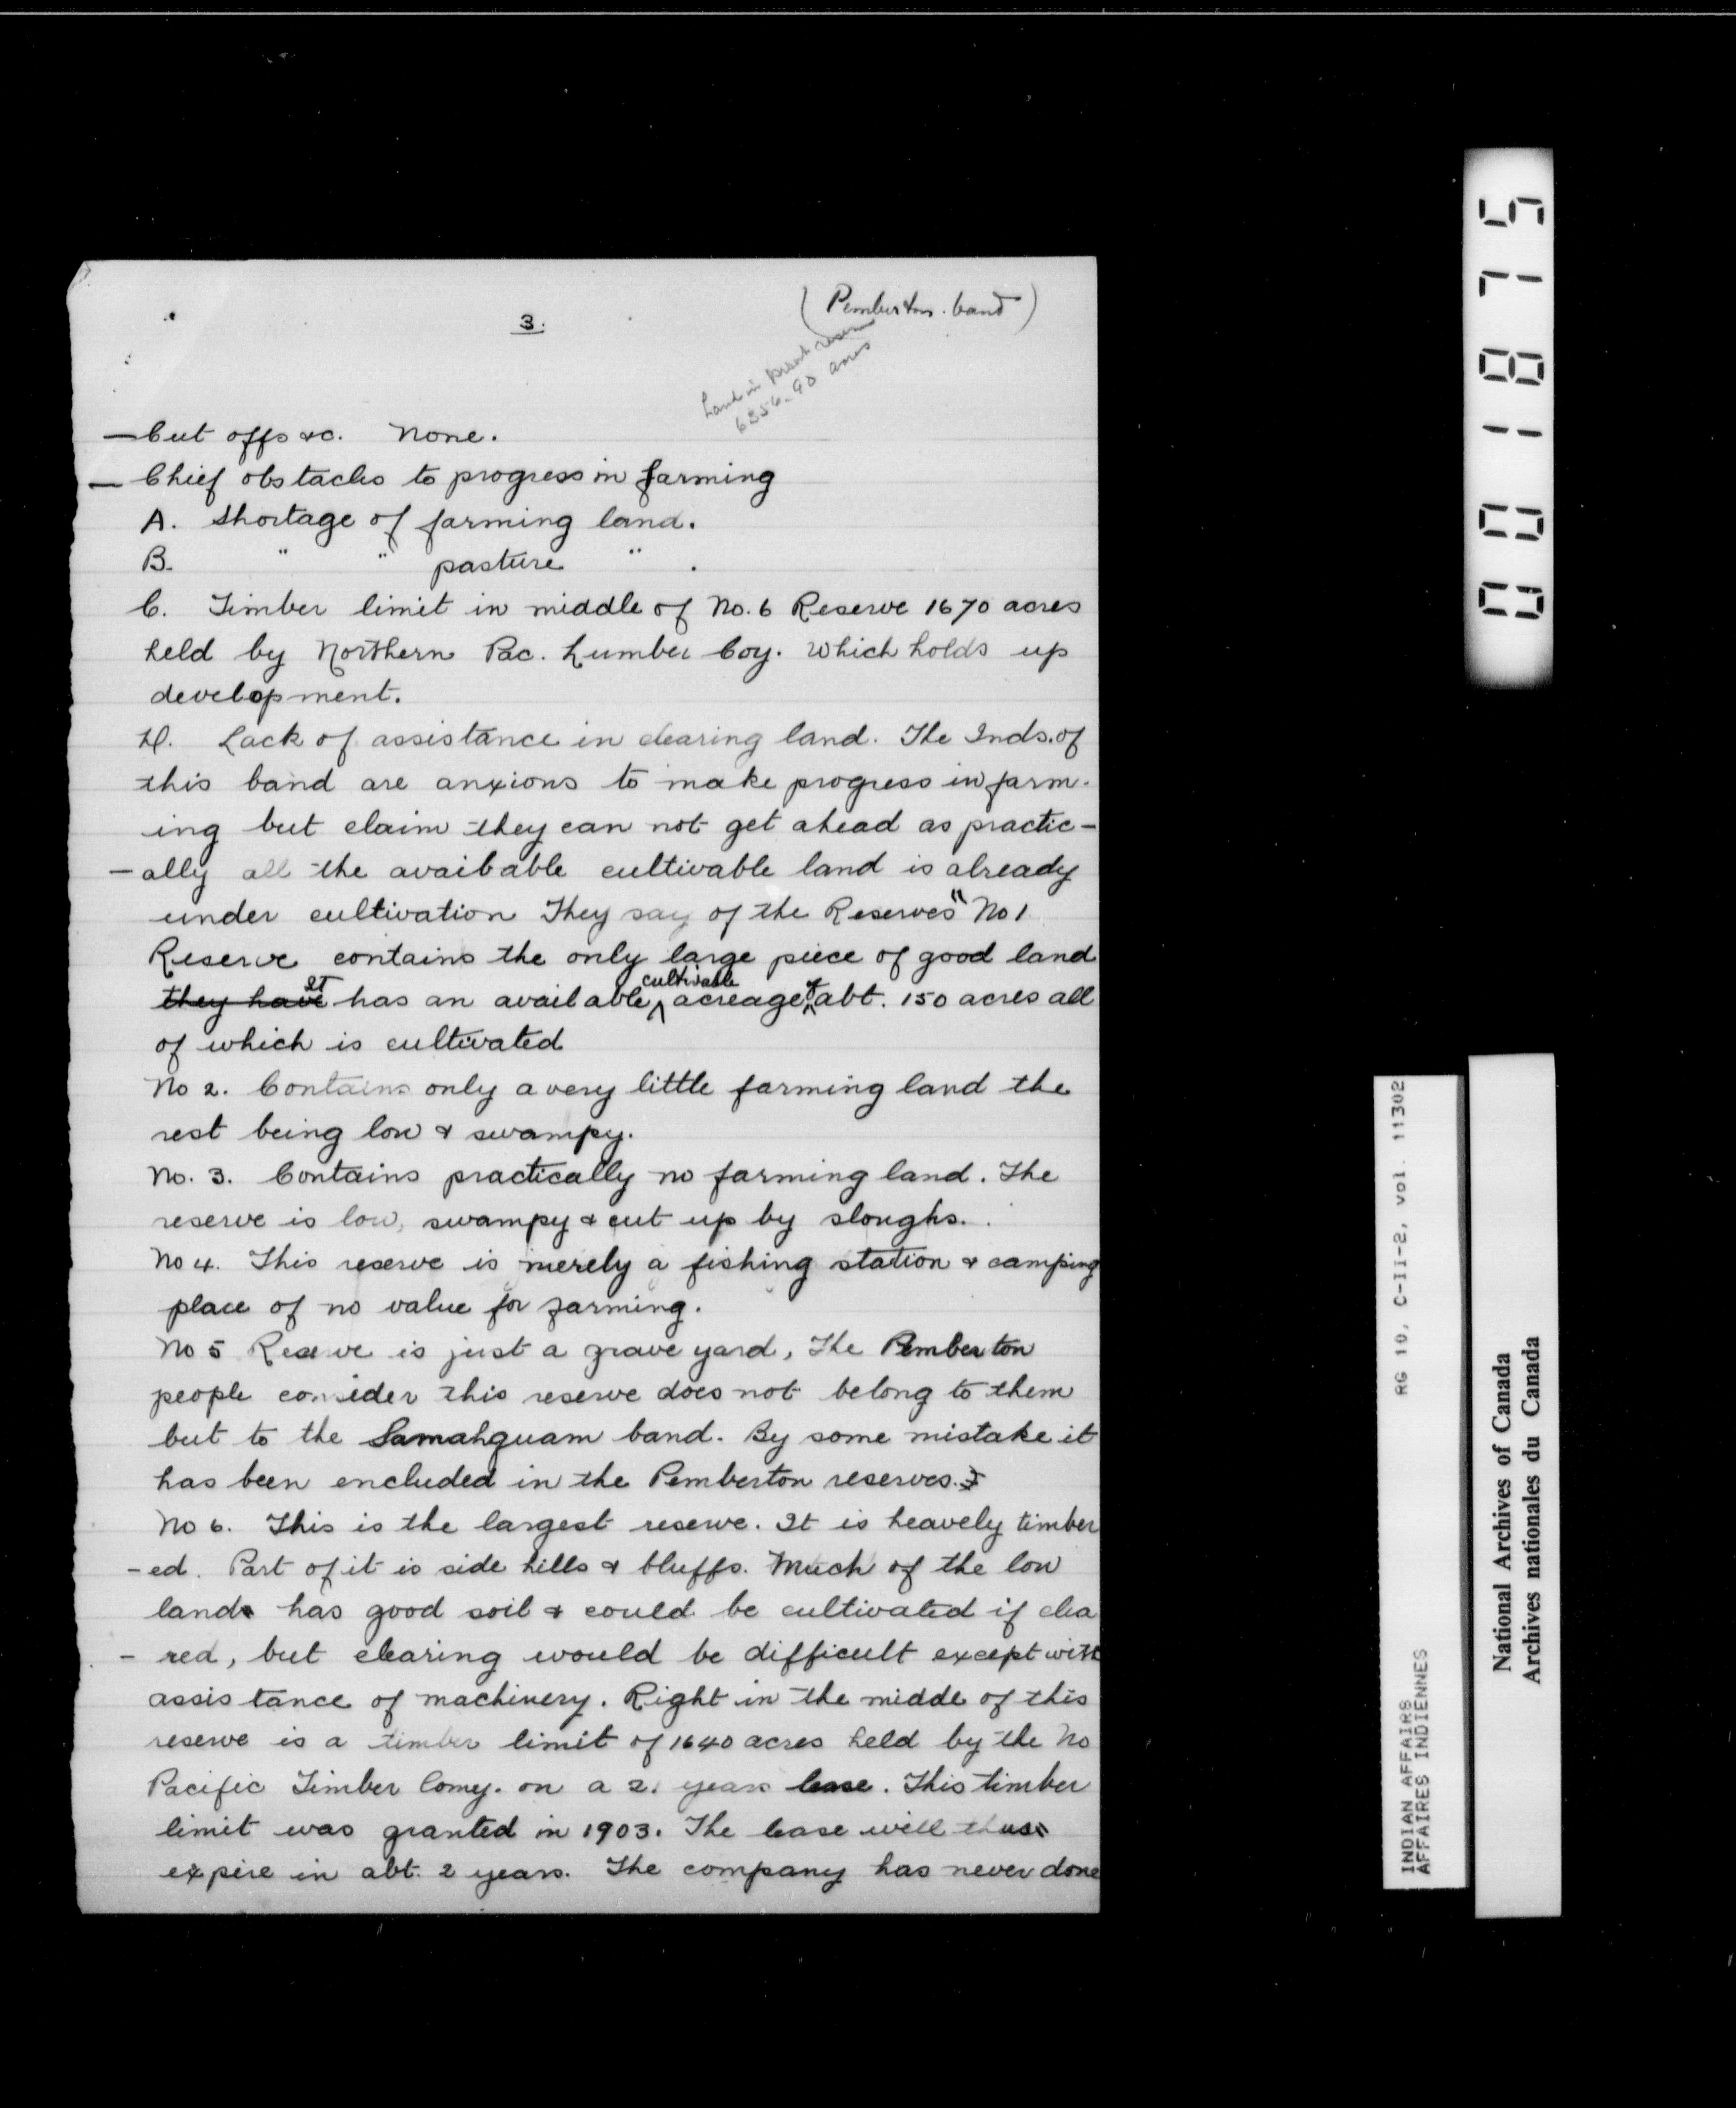 3.
(Pemberton band)
Land in present reserves
6356.90 acres
— Cut offs &c. None.
— Chief obstacles to progress in farming
A. Shortage of farming land.
B. " " pasture " .
C. Timber limit in middle of No. 6 Reserve 1670 acres
held by Northern Pac. Lumber Coy. which holds up
development.
D. Lack of assistance in clearing land. The Inds. of
this band are anxious to make progress in farm-
ing but claim they can not get ahead as practic-
-ally all the available cultivable land is already
under cultivation They say of the Reserves "No 1
Reserve contains the only large piece of good land
they have It has an available cultivable acreage of abt. 150 acres all
of which is cultivated
No 2. Contains only a very little farming land the
rest being low & swampy.
No. 3. Contains practically no farming land. The
reserve is low, swampy & cut up by sloughs.
No 4. This reserve is merely a fishing station & camping
place of no value for farming.
No 5 Reserve is just a grave yard, The Pemberton
people consider this reserve does not belong to them
but to the Samahquam band. By some mistake it
has been encluded in the Pemberton reserves.
No 6. This is the largest reserve. It is heavely timber
-ed. Part of it is side hills & bluffs. Much of the low
land has good soil & could be cultivated if clea
-red, but clearing would be difficult except with
assistance of machinery. Right in the midde of this
reserve is a timber limit of 1640 acres held by the No
Pacific Timber Comy. on a 21 years lease. This timber
limit was granted in 1903. The lease will thus
expire in abt. 2 years. The company has never done
001875
RG 10, C-II-2, vol. 11302
INDIAN AFFAIRS
AFFAIRES INDIENNES
National Archives of Canada
Archives nationales du Canada